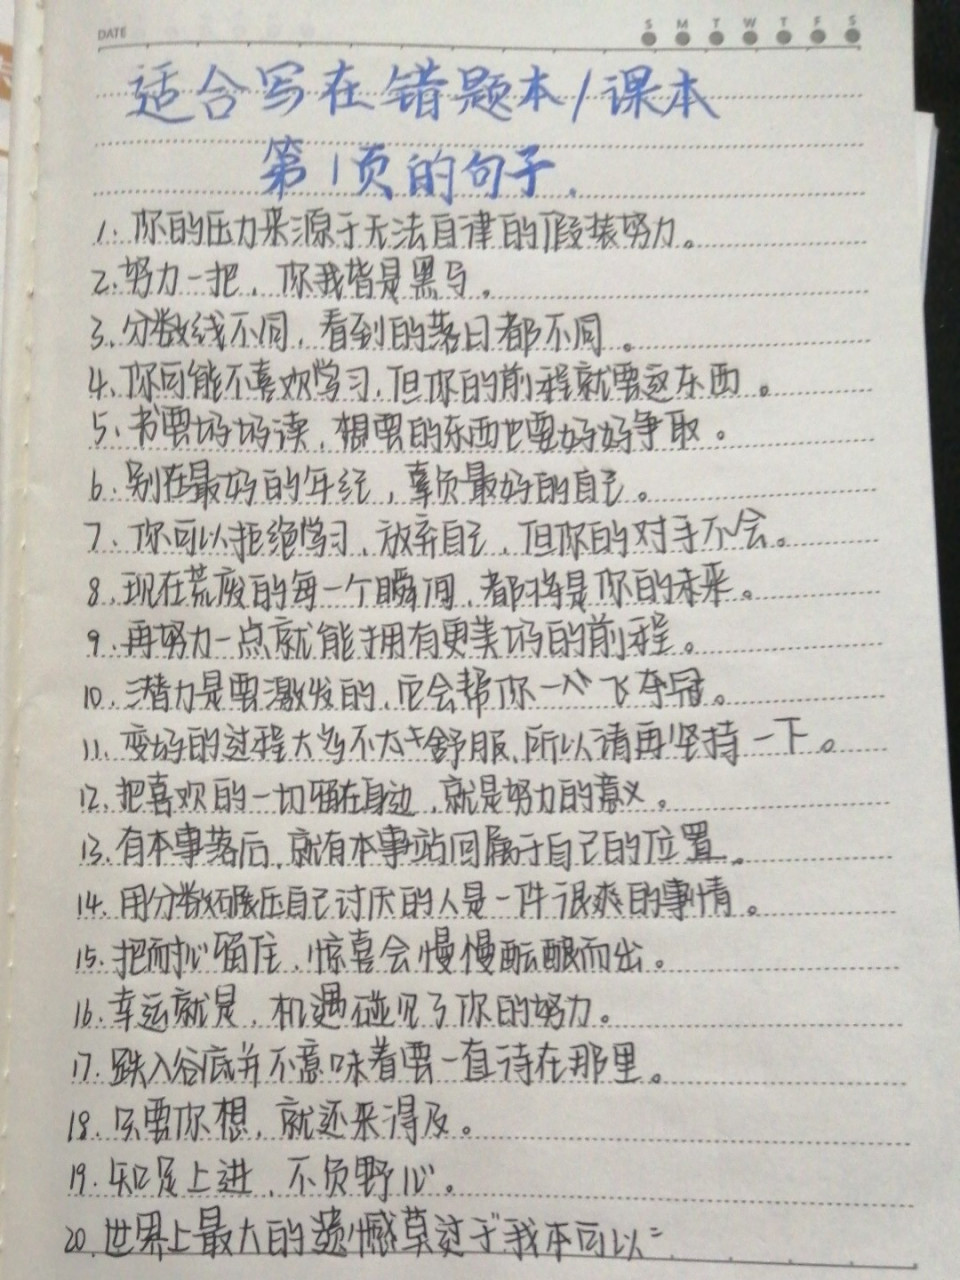 DATE
S M T W T F S
适合写在错题本/课本
第1页的句子.
1. 你的压力来源于无法自律的假装努力。
2. 努力一把, 你我皆是黑马。
3. 分数线不同, 看到的落日都不同。
4. 你可能不喜欢学习, 但你的前程就要这东西。
5. 书要好好读, 想要的东西也要好好争取。
6. 别在最好的年纪, 辜负最好的自己。
7. 你可以拒绝学习, 放弃自己, 但你的对手不会。
8. 现在荒废的每一个瞬间, 都将是你的未来。
9. 再努力一点就能拥有更美好的前程。
10. 潜力是要激发的, 它会帮你一飞夺冠。
11. 变好的过程大多不太舒服, 所以请再坚持一下。
12. 把喜欢的一切留在身边, 就是努力的意义。
13. 有本事落后, 就有本事站回属于自己的位置。
14. 用分数碾压自己讨厌的人是一件很爽的事情。
15. 把耐心留住, 惊喜会慢慢酝酿而出。
16. 幸运就是, 机遇碰见了你的努力。
17. 跌入谷底并不意味着要一直待在那里。
18. 只要你想, 就还来得及。
19. 知足上进, 不负野心。
20. 世界上最大的遗憾莫过于"我本可以"